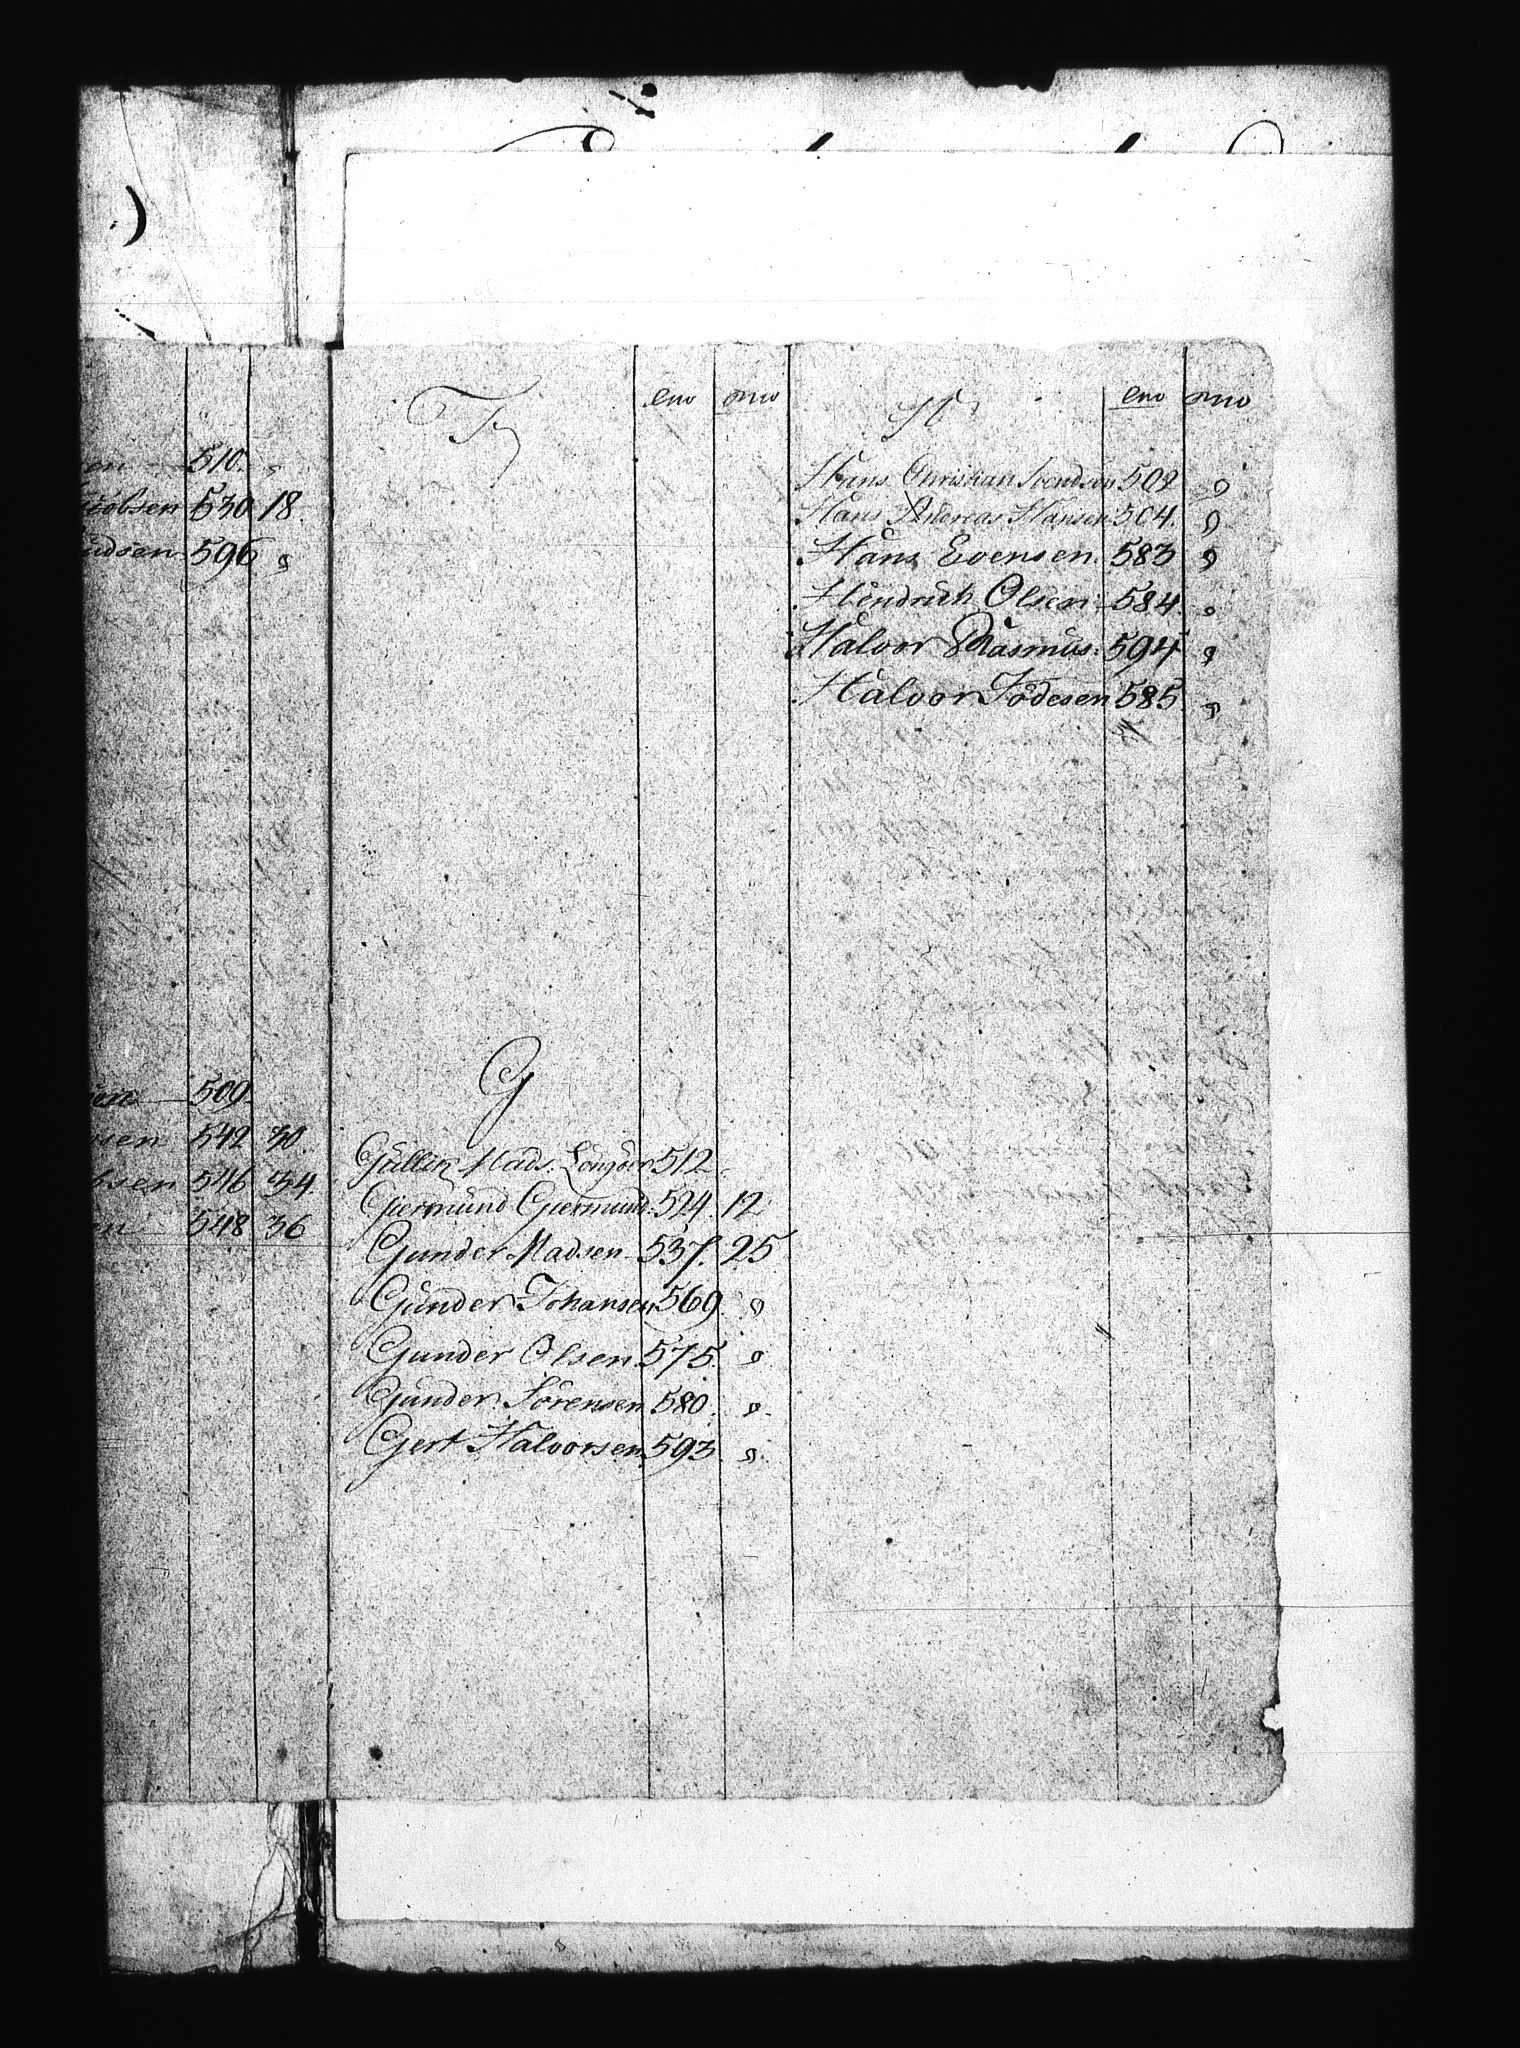 510. "
530 18.
udsen 596 "
509
sen 542 30.
bsen 546 34.
en 548 36
F
eno mno
G
Gullik Mads: 512
Giermund Giermund: 524. 12
Gunder Madsen 537. 25
Gunder Johansen 569. "
Gunder Olsen 575. "
Gunder Sörensen 580. "
Gert Halvorsen 593. "
H
eno mno
Hans Christian Svendsen 502 "
Hans Andreas Hansen 504. "
Hans Evensen. 583 "
Hendrich Olsen 584. "
Halvor Rasmus: 594 "
Halvor Jödesen 585 "